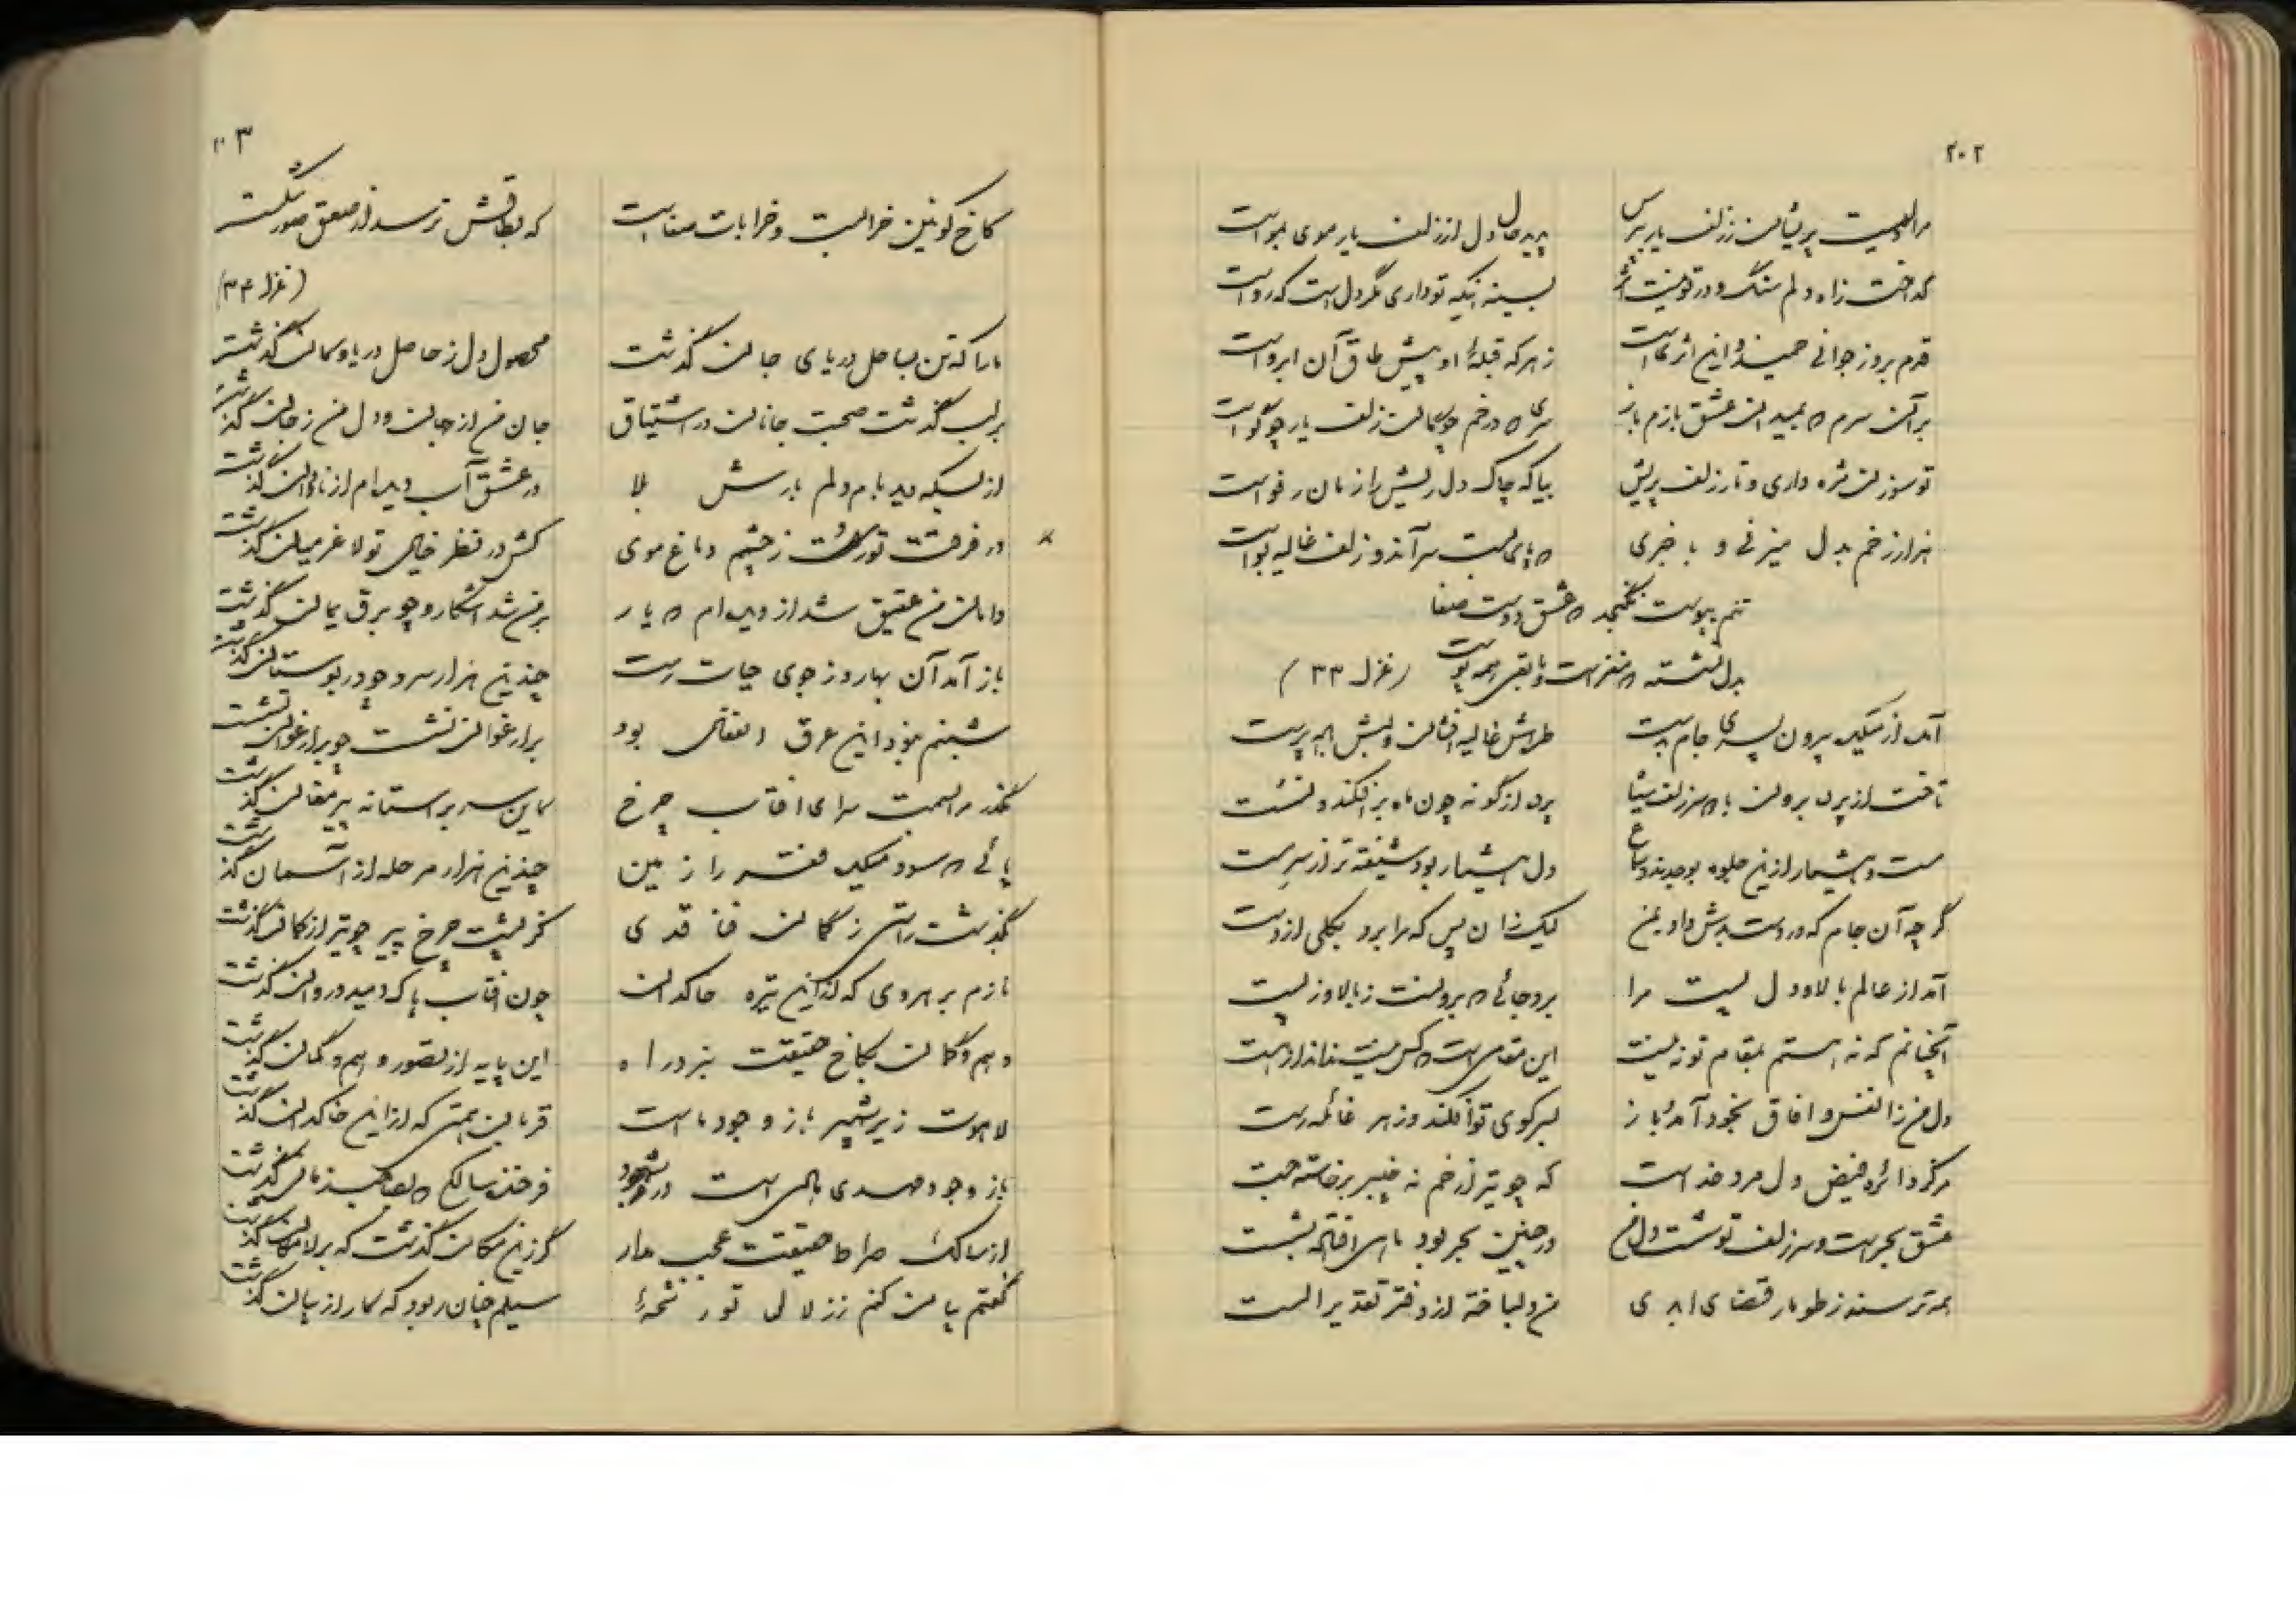 ۲۰۲
مرا دلیست پریشان ز زلف یار بپرس بپرس حال دل از زلف یار موی بموست
گداخت ز آه دلم سنگ و در تو نیست اثر بسینه اینکه تو داری مگر دل است که روست
قدم بروز جوانی خمید و این اثر از هر که قبله او پیش طاق آن ابروست
بر آن سرم که بمیدان عشق بازم باز سری که در خم چوگان زلف یار چو گوست
تو سوزن مژه داری و تار زلف پریش بیا که چاک دل ریش را زمان رفوست
هزار زخم بدل میزنی و با خبری که پای بست سر آن دو زلف غالیه بوست
تنم بپوست نگنجد که عشق دوست صفا
بدل نشسته که مغز است و مابقی همه پوست (غزل ۳۳)
آمد از میکده بیرون پسری جام بدست طره‌اش غالیه افشان و لبش باده پرست
تافت از پرده برون با سر زلف پرده از گونه چون ماه بر افکند و نشست
مست و هشیار ازین جلوه بوجد و سماع دل هشیار بود شیفته‌تر از سر مست
گر چه آن جام که در دست بدش داد بمن لیک زان پس که مرا برد بکلی از دست
آمد از عالم بالا و دل پست مرا برد جائی که برونست ز بالا و ز پست
آنچنانم که نه هستم بمقام تو نه نیست این مقامی است که کس نیست نداند از هست
دل من ز انفس و آفاق بخود آمد باز بسر کوی تو افکند و ز هر غائله رست
مرکز دائره فیض دل مرد خداست که چو تیر از خم نه چنبر برخاسته جست
عشق بحر است و سر زلف تو شست و دل من در چنین بحر بود ماهی افتاده بشست
همه ترسند ز طومار قضای ابدی من دلباخته از دفتر تقدیر الست
۲۰۳
کاخ کونین خرابست و خرابات صفاست که بطاقش نرسد از صعق صور شکست
(غزل ۳۴)
ما را که تن بساحل دریای جان گذشت محصول دل ز حاصل دریا و کان گذشت
بر لب گذشت صحبت جانان در اشتیاق جان من از جهان و دل من ز جان گذشت
از بسکه دیده‌بام و دلم بارش بلا در عشق آب دیده‌ام از ناودان گذشت
در فرقت تو رست ز چشم و دماغ موی کش در نظر خیال تو لاغر میان گذشت
دامان من عقیق شد از دیده‌ام که یار بر من شد آشکار و چو برق یمان گذشت
باز آمد آن بهار و ز جوی حیات رست چندین هزار سرو چو در بوستان گذشت
شبنم نبود این عرق انفعال بود بر ارغوان نشست چو بر ارغوان گذشت
بگذر مرا بسمت سرای آفتاب چرخ کاین سر بر آستانه پیر مغان گذشت
پائی که سود میکده فقر را زمین چندین هزار مرحله از آسمان گذشت
بگذشت راستی ز کمان قد ی کز پشت چرخ پیر چو تیر از کمان گذشت
نازم برهروی که ازین تیره خاکدان چون آفتاب پاک دمید و روان گذشت
وهم و گمان بکاخ حقیقت نبرد راه این پایه از تصور و وهم و گمان گذشت
لاهوت زیر شهپر باز وجود ماست قربان همتی که از این خاکدان گذشت
باز وجود مهدی هادی است در شهود فرخنده سالکی که بصاحب زمان گذشت
از سالک صراط حقیقت عجب مدار گر زین مکان گذشت که بر لامکان گذشت
گفتم بیان کنم ز زلال تو رشحه‌ای سیلم چنان ربود که کار از بیان گذشت